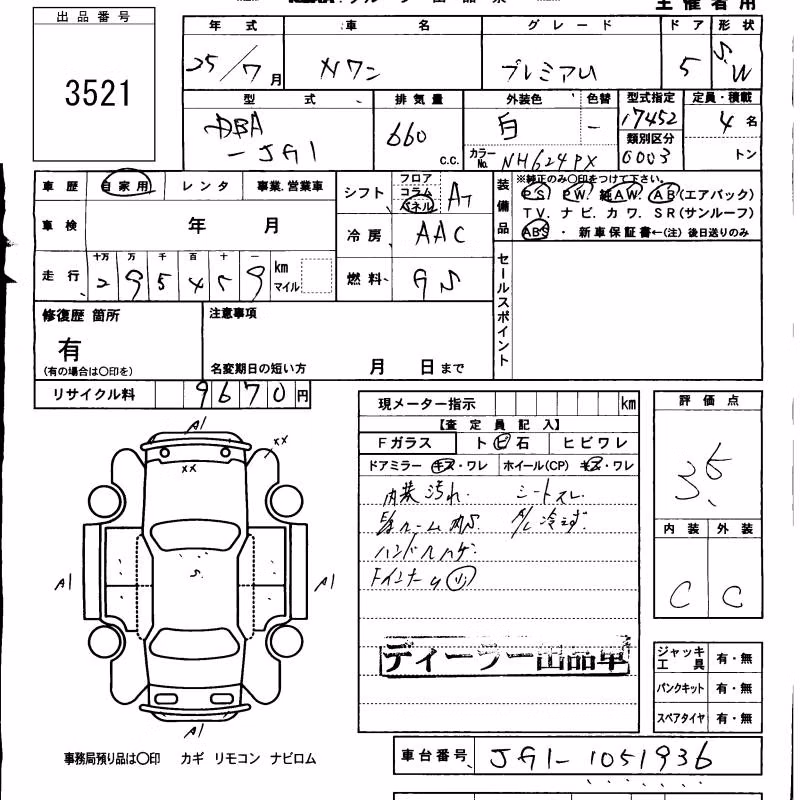 主催者用
出品番号
3521
年式 車名 グレード ドア 形状
25/7月 Nワン プレミアム 5 S.W
型式 排気量 外装色 色替 型式指定 定員・積載
DBA-JG1 660c.c. 白 ー 17452 4名
カラーNo. NH624PX 類別区分 0003 トン
車歴 自家用 レンタ 事業.営業車
シフト フロア コラム パネル AT
装備品 ※純正のみ○印をつけて下さい。
PS. PW. 純AW. AB(エアバック)
TV. ナビ. カワ. SR(サンルーフ)
ABS ・ 新車保証書←(注) 後日送りのみ
車検 年 月
冷房 AAC
走行 十万 万 千 百 十 一
295459 km マイル
燃料 GS
セールスポイント
修復歴 箇所
有
(有の場合は○印を)
注意事項
名変期日の短い方 月 日まで
リサイクル料 9670円
現メーター指示 km
【査定員記入】
Fガラス トビ石 ヒビワレ
ドアミラー キズ・ワレ ホイール(CP) キズ・ワレ
内装汚れ. シートスレ
ルーム A/C冷えず.
ハンドルハゲ.
Fインナー
ディーラー出品車
評価点
3.5
内装 外装
C C
ジャッキ工具 有・無
パンクキット 有・無
スペアタイヤ 有・無
A1
xx
xx
A1
S.
A1
A1
事務局預り品は○印 カギ リモコン ナビロム
車台番号 JG1-1051936